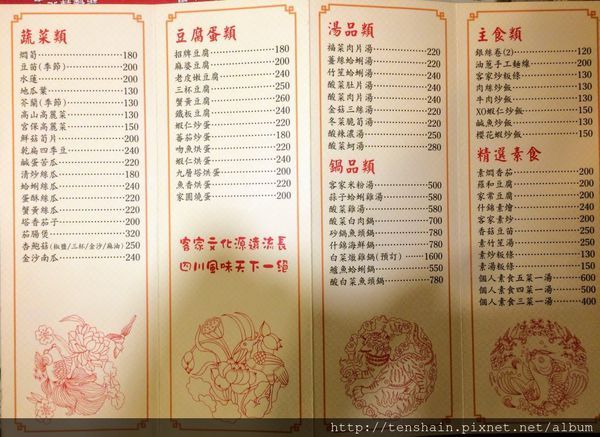 蔬菜類
燜筍 180
豆苗(季節) 200
水蓮 200
地瓜葉 130
芥蘭(季節) 130
高山高麗菜 130
宮保高麗菜 150
鮮菇筍片 200
乾扁四季豆 240
鹹蛋苦瓜 220
清炒絲瓜 180
蛤蜊絲瓜 240
蛋酥絲瓜 220
蟹黃絲瓜 260
塔香茄子 200
茄腸煲 320
杏鮑菇(椒鹽/三杯/金沙/麻油) 250
金沙南瓜 240
豆腐蛋類
招牌豆腐 180
麻婆豆腐 200
老皮嫩豆腐 240
三杯豆腐 250
蟹黃豆腐 260
鐵板豆腐 240
蝦仁炒蛋 200
蕃茄炒蛋 180
吻魚烘蛋 220
蝦仁烘蛋 240
九層塔烘蛋 200
魚香烘蛋 220
家圓燒蛋 200
客家文化源遠流長
四川風味天下一絕
湯品類
福菜肉片湯 220
薑絲蛤蜊湯 220
竹笙蛤蜊湯 240
酸菜肚片湯 240
酸菜肉片湯 240
金菇三絲湯 200
冬菜脆筍湯 200
酸辣濃湯 250
酸菜蚵湯 280
鍋品類
客家米粉湯 500
蒜子蛤蜊雞湯 680
酸菜雞湯 680
酸菜白肉鍋 700
砂鍋魚頭鍋 780
什錦海鮮鍋 780
白菜燉雞鍋(預訂) 1600
鱸魚蛤蜊鍋 550
酸白菜魚頭鍋 780
主食類
銀絲卷(2) 120
油蔥手工麵線 200
客家炒粄條 130
肉絲炒飯 130
牛肉炒飯 130
XO蝦仁炒飯 180
鹹魚炒飯 180
櫻花蝦炒飯 200
精選素食
素燜香茄 200
羅和豆腐 200
家常豆腐 200
什錦素燴 240
客家素炒 200
香菇豆苗 250
素竹笙湯 250
素炒粄條 130
素湯粄條 130
個人素食五菜一湯 600
個人素食四菜一湯 500
個人素食三菜一湯 400
http://tenshain.pixnet.net/album